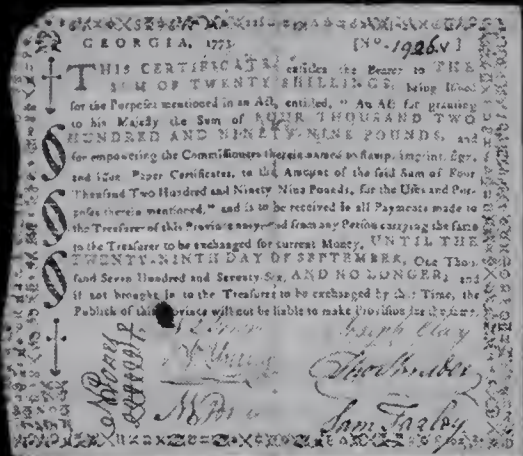 GEORGIA, 1773. [No. 1926.]
THIS CERTIFICATE entitles the Bearer to THE
SUM OF TWENTY SHILLINGS, being issued
for the Purposes mentioned in an Act, entitled, "An Act for granting
to his Majesty the Sum of FOUR THOUSAND TWO
HUNDRED AND NINETY-NINE POUNDS, and
for empowering the Commissioners therein named to stamp, imprint, sign,
and issue Paper Certificates, to the Amount of the said Sum of Four
Thousand Two Hundred and Ninety Nine Pounds, for the Uses and Pur-
poses therein mentioned," and is to be received in all Payments made to
the Treasurer of this Province and from any Person carrying the same
to the Treasurer to be exchanged for current Money, UNTIL THE
TWENTY-NINTH DAY OF SEPTEMBER, One Thou-
sand Seven Hundred and Seventy-Six, AND NO LONGER; and
if not brought in to the Treasurer to be exchanged by that Time, the
Publick of this Province will not be liable to make Provision for the same.
Joseph Clay
Sam Farley